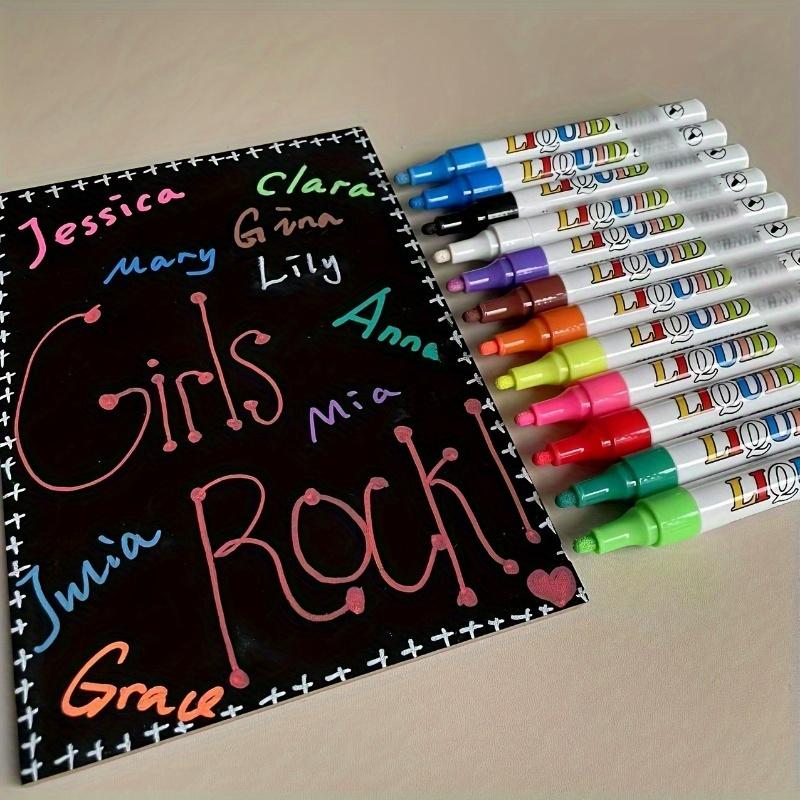 Jessica
Clara
Gina
Mary
Lily
Anna
Girls
Mia
Rock!
Julia
Grace
LIQUID
LIQUID
LIQUID
LIQUID
LIQUID
LIQUID
LIQUID
LIQUID
LIQUID
LIQUID
LIQUI
LIQU